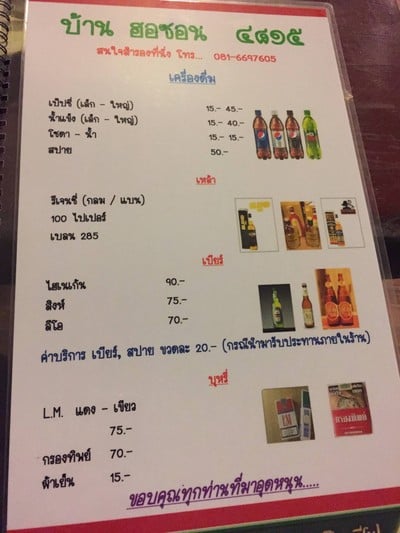 บ้าน ฮอซอน ๔๘๑๕
สนใจสำรองที่นั่ง โทร... 081-6697605
เครื่องดื่ม
เป๊ปซี่ (เล็ก - ใหญ่) 15.- 45.-
น้ำแข็ง (เล็ก - ใหญ่) 15.- 40.-
โซดา - น้ำ 15.- 15.-
สปาย 50.-
เหล้า
รีเจนซี่ (กลม / แบน)
100 ไปเปอร์
เบลน 285
เบียร์
ไฮเนเก้น 90.-
สิงห์ 75.-
ลีโอ 70.-
ค่าบริการ เบียร์, สปาย ขวดละ 20.- (กรณีนำมารับประทานภายในร้าน)
บุหรี่
L.M. แดง - เขียว
75.-
กรองทิพย์ 70.-
ผ้าเย็น 15.-
ขอบคุณทุกท่านที่มาอุดหนุน.....